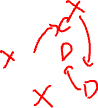 X
X
X
D
X
D